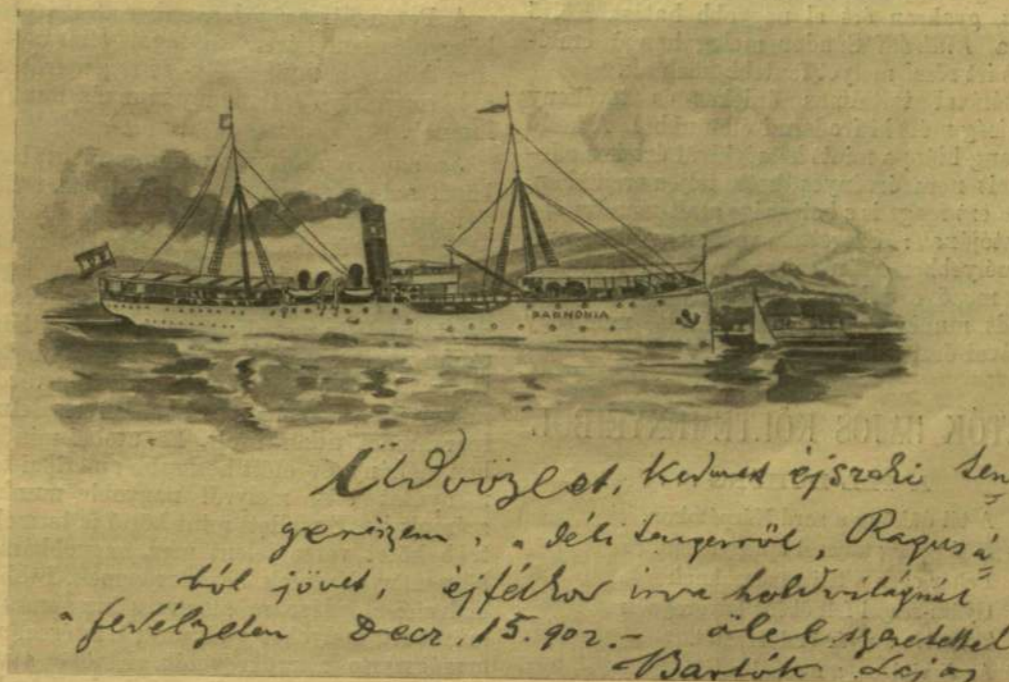 PANNONIA
Üdvözlet, kedves éjszaki ten=
gerészem, a déli tengerről, Ragusá=
ból jövet, éjfélkor irva holdvilágnál
a fedélzeten Decz. 15. 902. – ölel szeretettel
Bartók Lajos